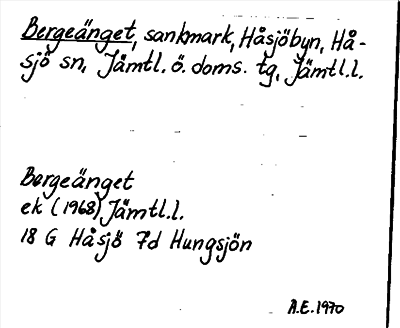 Bergeänget, sankmark, Håsjöbyn, Hå-
sjö sn, Jämtl. ö. doms. tg, Jämtl.l.
Bergeänget
ek (1968) Jämtl.l.
18 G Håsjö 7d Hungsjön
A.E. 1970